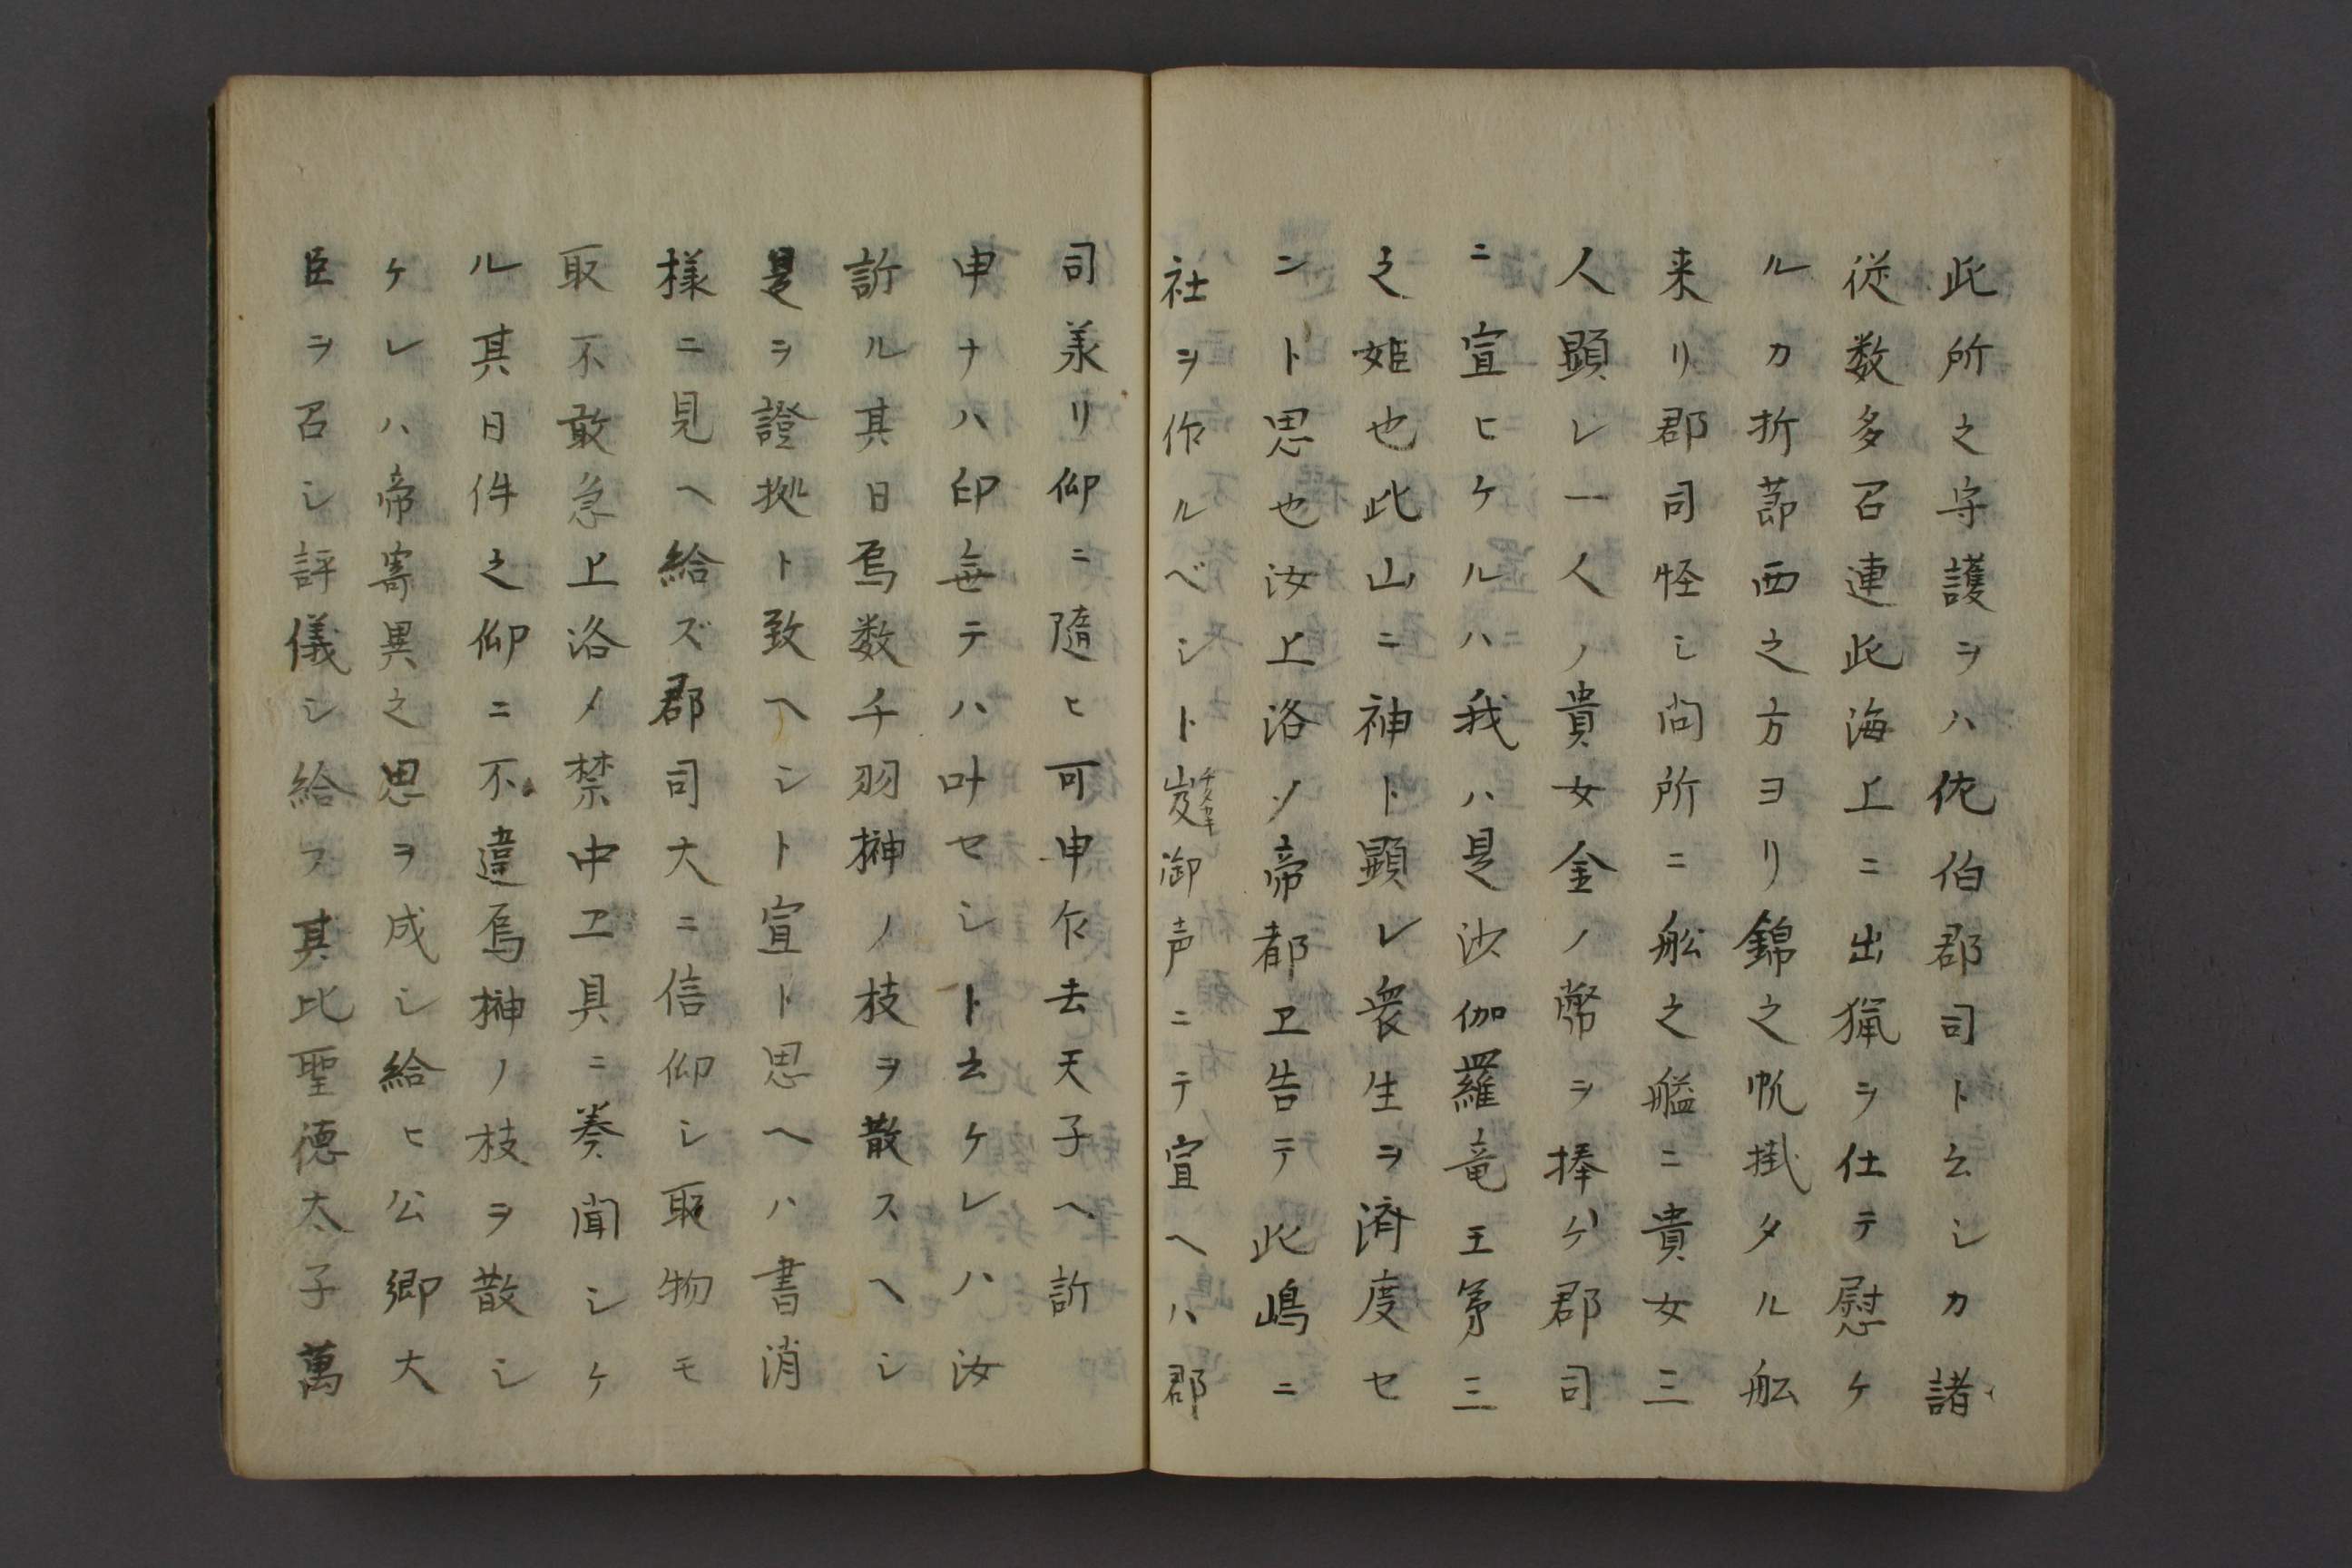 此所之守護ヲハ佗伯郡司ト云シカ諸
従数多召連此海上ニ出猟ヲ仕テ慰ケ
ルカ折節西之方ヨリ錦之帆掛タル舩
来リ郡司怪シ向所ニ舩之艫ニ貴女三
人顕レ一人ノ貴女金ノ幣ヲ捧ゲ郡司
ニ宣ヒケルハ我ハ是沙伽羅竜王第三
之姫也此山ニ神ト顕レ衆生ヲ済度セ
ント思也汝上洛ソ帝都ヱ告テ此嶋ニ
社ヲ作ルベシト御声ニテ宣ヘハ郡
司羕リ仰ニ隨ヒ可申乍去天子ヘ訴
申ナハ印無テハ叶セシト云ケレハ汝
訴ル其日烏数千羽榊ノ枝ヲ散スヘシ
是ヲ證拠ト致ヘシト宣ト思ヘハ書消
様ニ見ヘ給ズ郡司大ニ信仰シ取物モ
取不敢急上洛ノ禁中ヱ具ニ奏聞シケ
ル其日件之仰ニ不違烏榊ノ枝ヲ散シ
ケレハ帝寄異之思ヲ成シ給ヒ公卿大
臣ヲ召シ評儀シ給フ其比聖徳太子萬